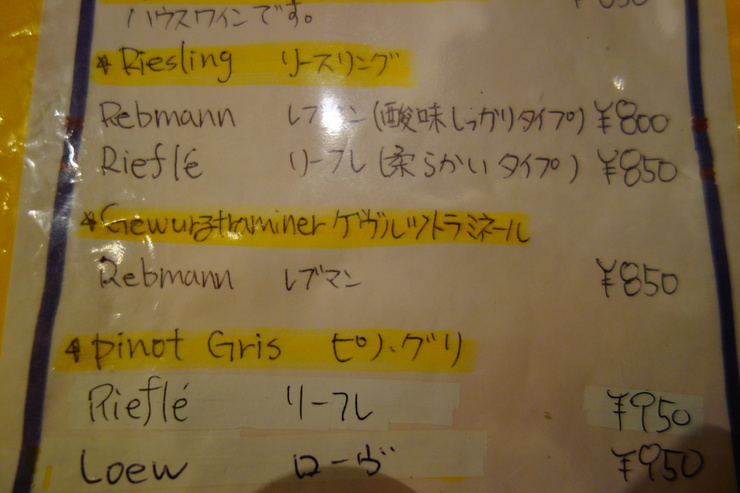 ハウスワインです。
*Riesling リースリング
Rebmann レブマン(酸味しっかりタイプ) ¥800
Rieflé リーフレ(柔らかいタイプ) ¥850
*Gewurztraminer ゲヴルツトラミネール
Rebmann レブマン ¥850
*pinot Gris ピノ・グリ
Rieflé リーフレ ¥950
Loew ローヴ ¥950